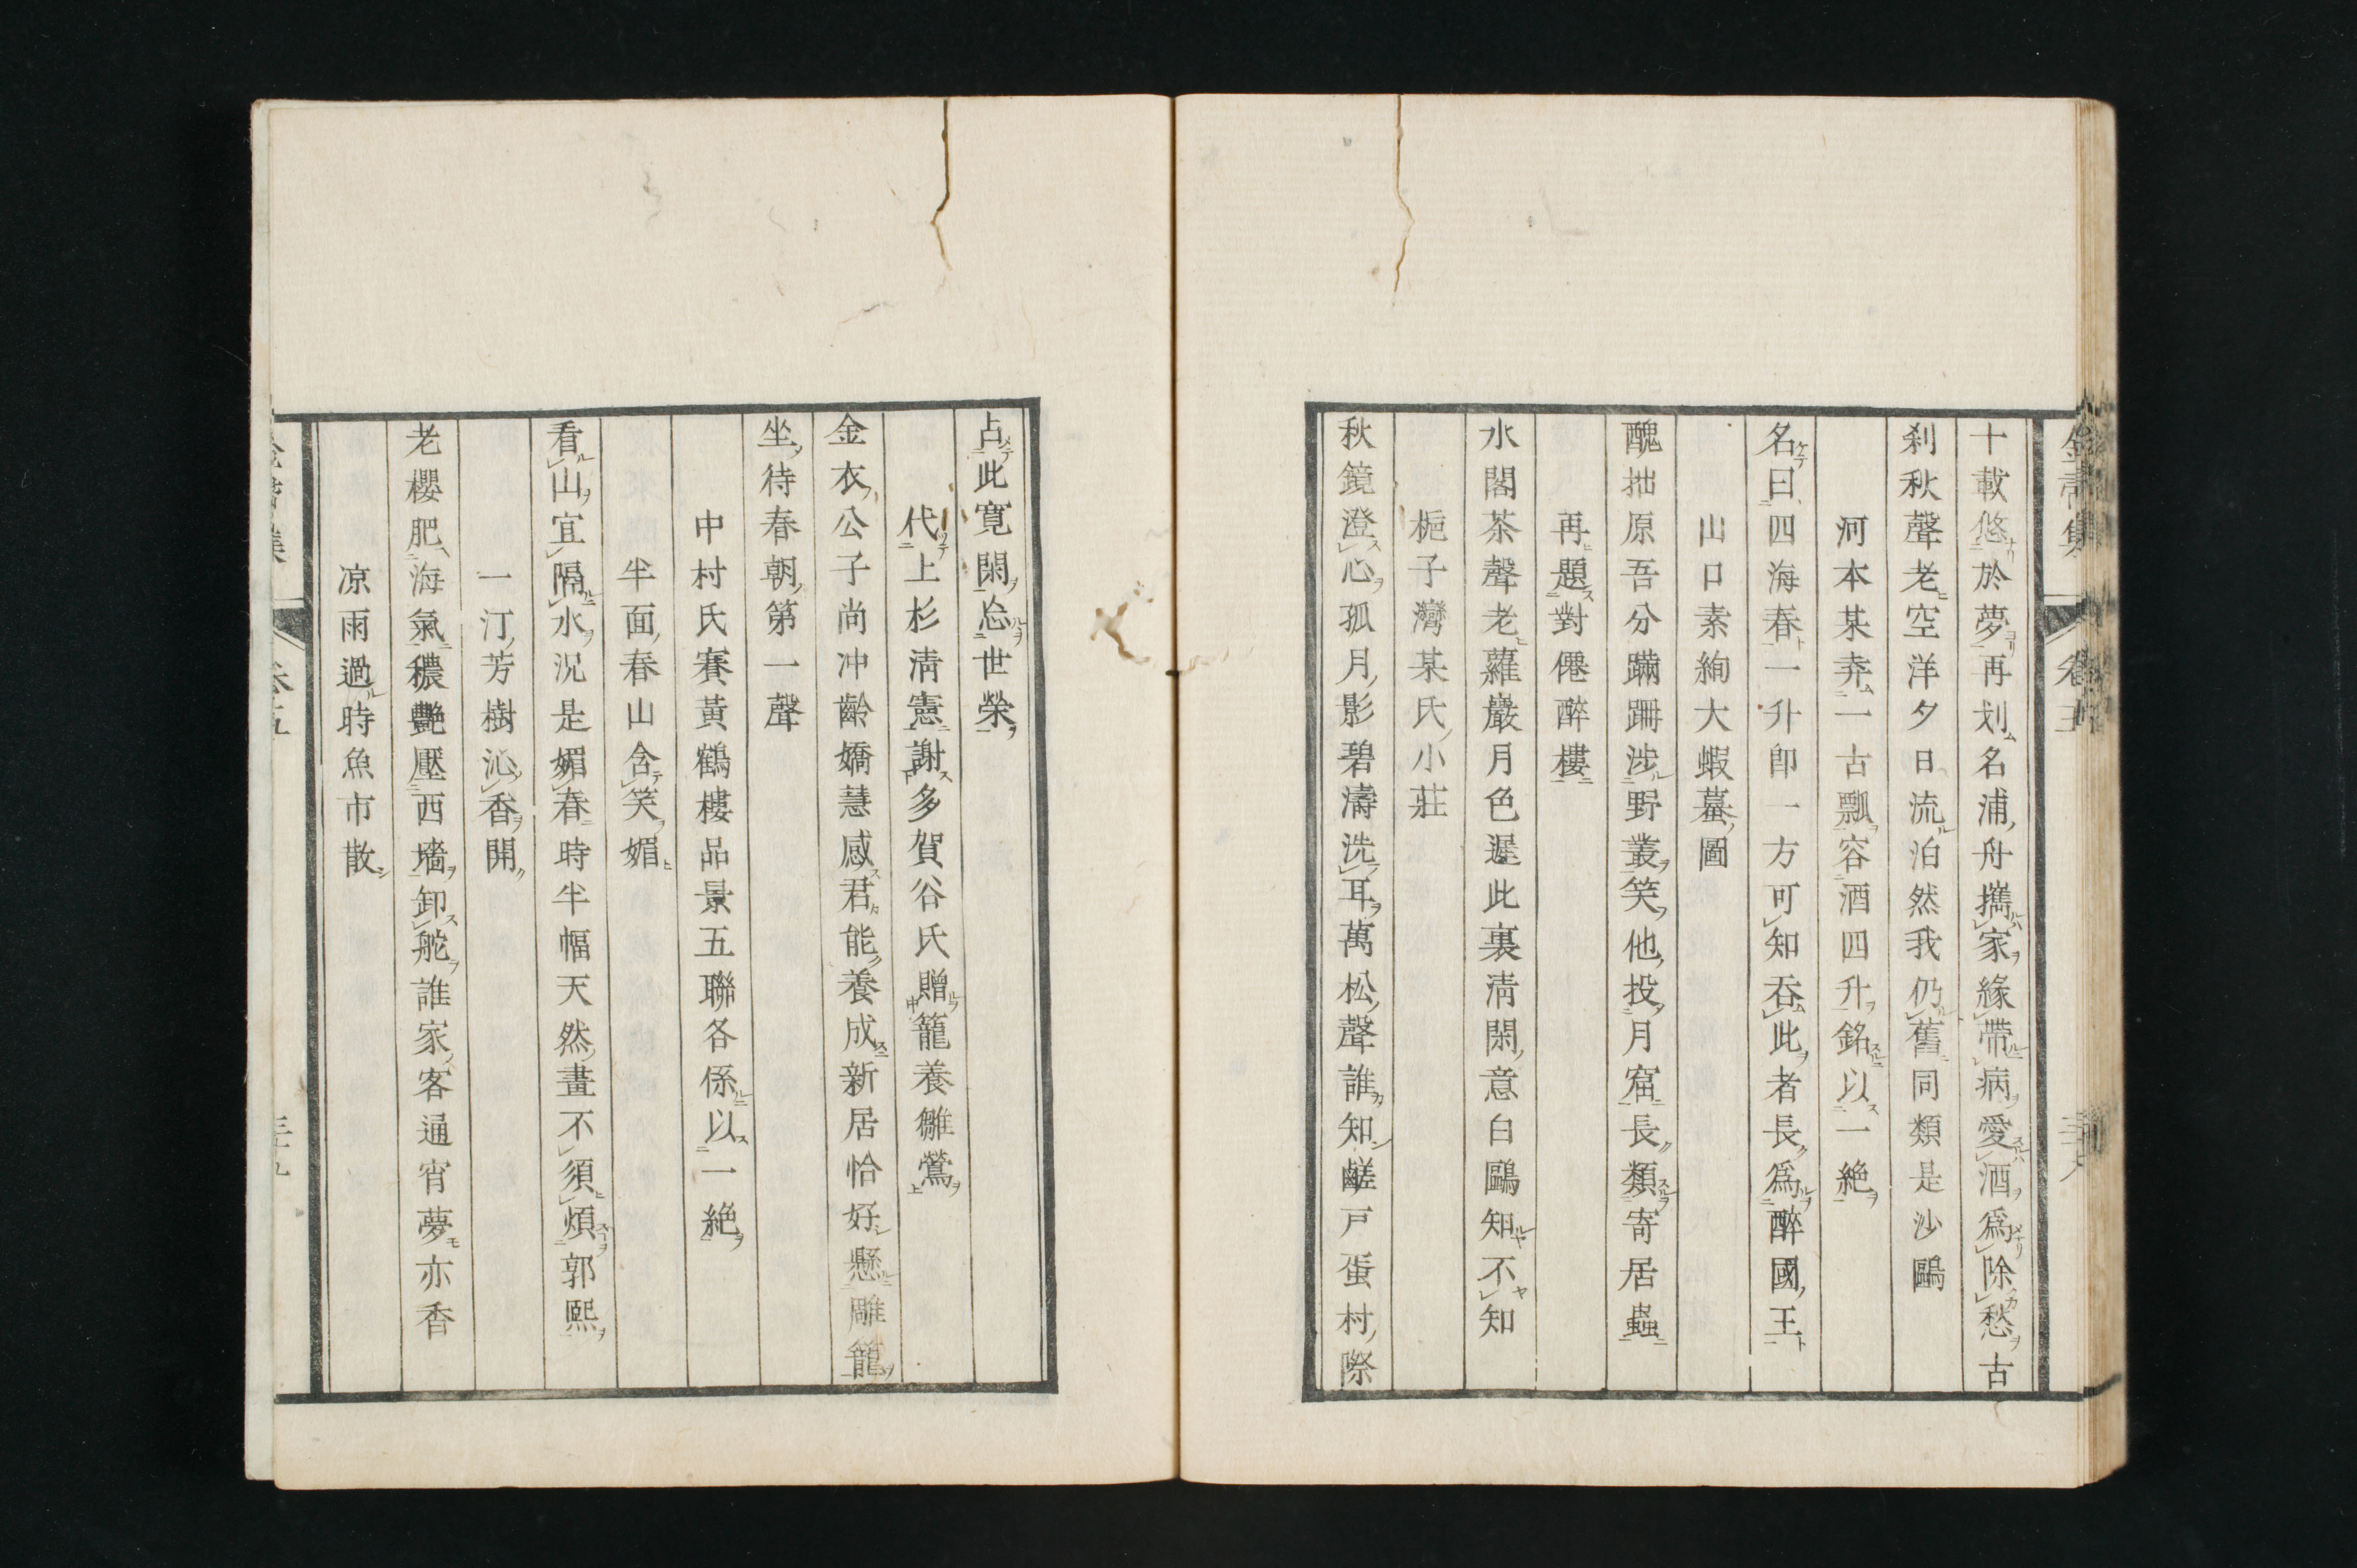 十載悠於夢再划名浦舟攜家緣帶病愛酒爲除愁古
刹秋聲老空洋夕日流泊然我仍舊同類是沙鷗
河本某弆一古瓢容酒四升銘以一絶
名曰四海春一升卽一方可知吞此者長爲醉國王
山口素絢大蝦蟇圖
醜拙原吾分蹣跚涉野叢笑他投月窟長類寄居蟲
再題對僊醉樓
水閣茶聲老蘿巖月色遲此裏淸閑意白鷗知不知
梔子灣某氏小莊
秋鏡澄心孤月影碧濤洗耳萬松聲誰知鹺戸蛋村際
占此寛閑忘世榮
代上杉淸憲謝多賀谷氏贈籠養雛鶯
金衣公子尚冲齡嬌慧感君能養成新居恰好懸雕籠
坐待春朝第一聲
中村氏賽黃鶴樓品景五聯各係以一絶
半面春山含笑媚
看山宜隔水況是媚春時半幅天然畫不須煩郭熙
一汀芳樹沁香開
老櫻肥海氣穠艷壓西墻卸舵誰家客通宵夢亦香
凉雨過時魚市散